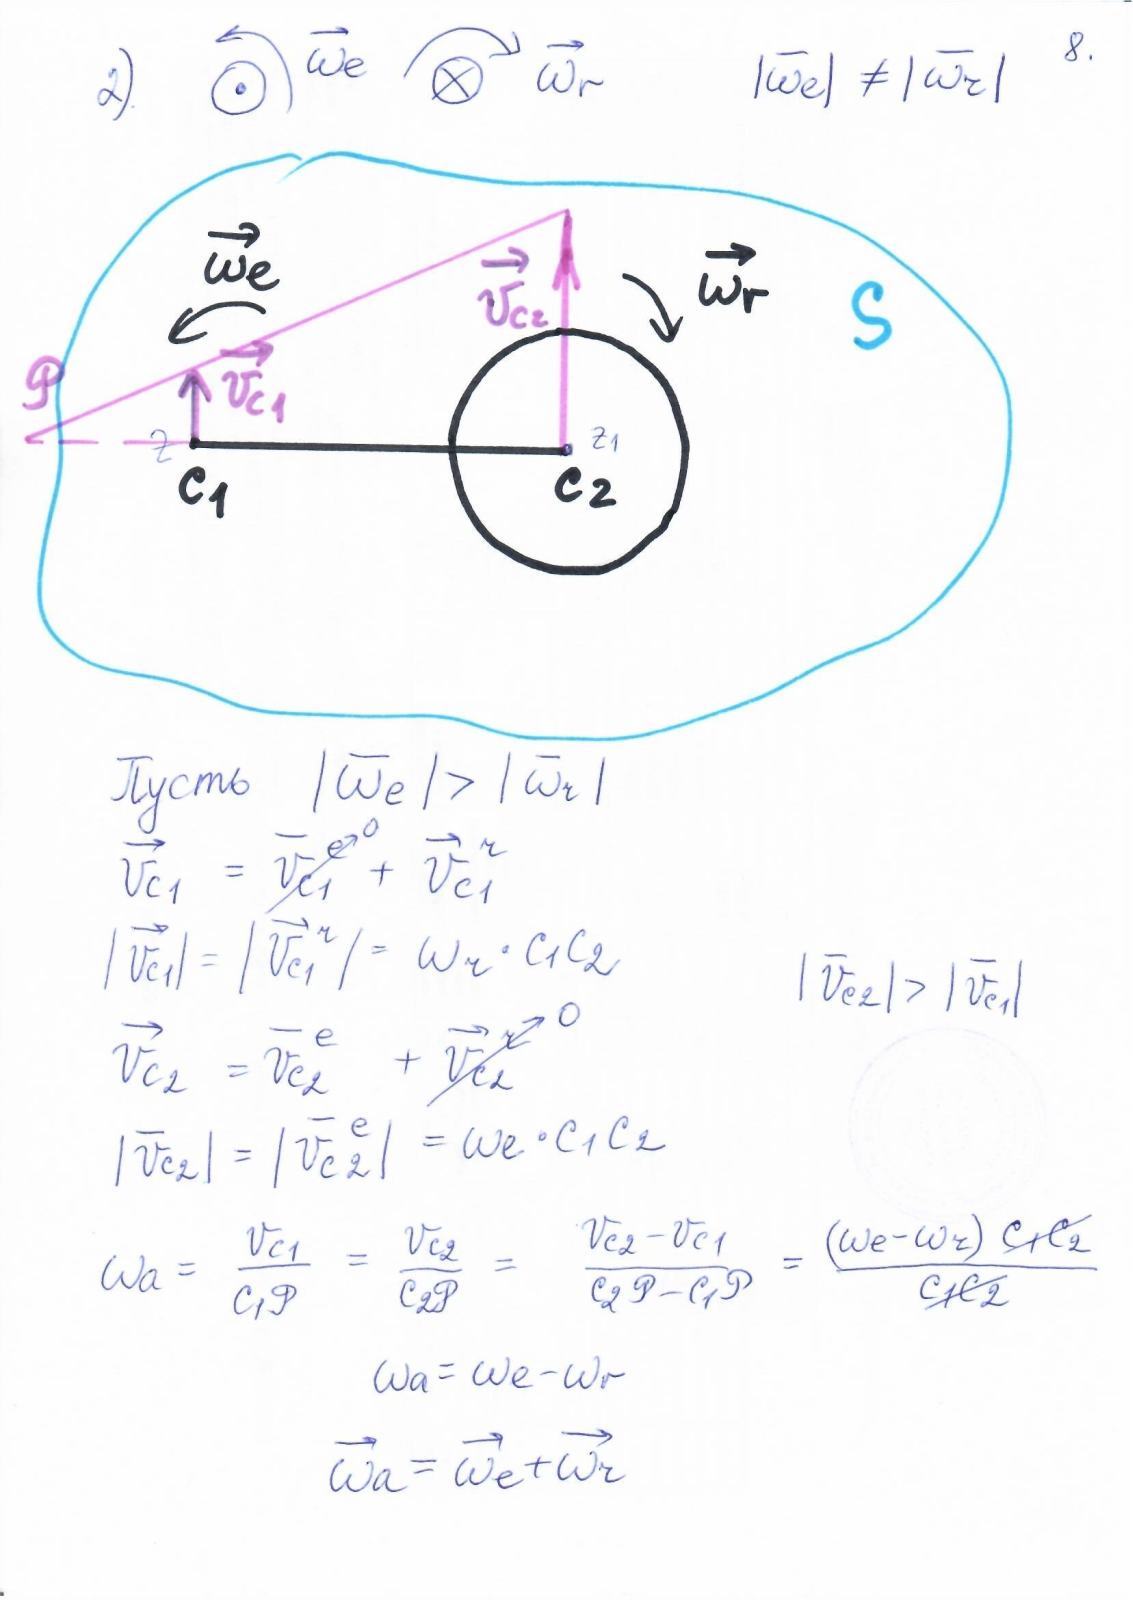 8.
2). ω⃗e ω⃗r |ω̄e| ≠ |ω̄r|
ω⃗e
ω⃗r
v⃗c2
S
P
v⃗c1
z
z1
C1
C2
Пусть |ω̄e| > |ω̄r|
v⃗c1 = v̄c1^e 0 + v⃗c1^r
|v⃗c1| = |v⃗c1^r| = ωr · C1C2
|v̄c2| > |v̄c1|
v⃗c2 = v̄c2^e + v⃗c2^r 0
|v̄c2| = |v̄c2^e| = ωe · C1C2
ωa = vc1/C1P = vc2/C2P = (vc2 - vc1)/(C2P - C1P) = (ωe - ωr) C1C2/C1C2
ωa = ωe - ωr
ω⃗a = ω⃗e + ω⃗r